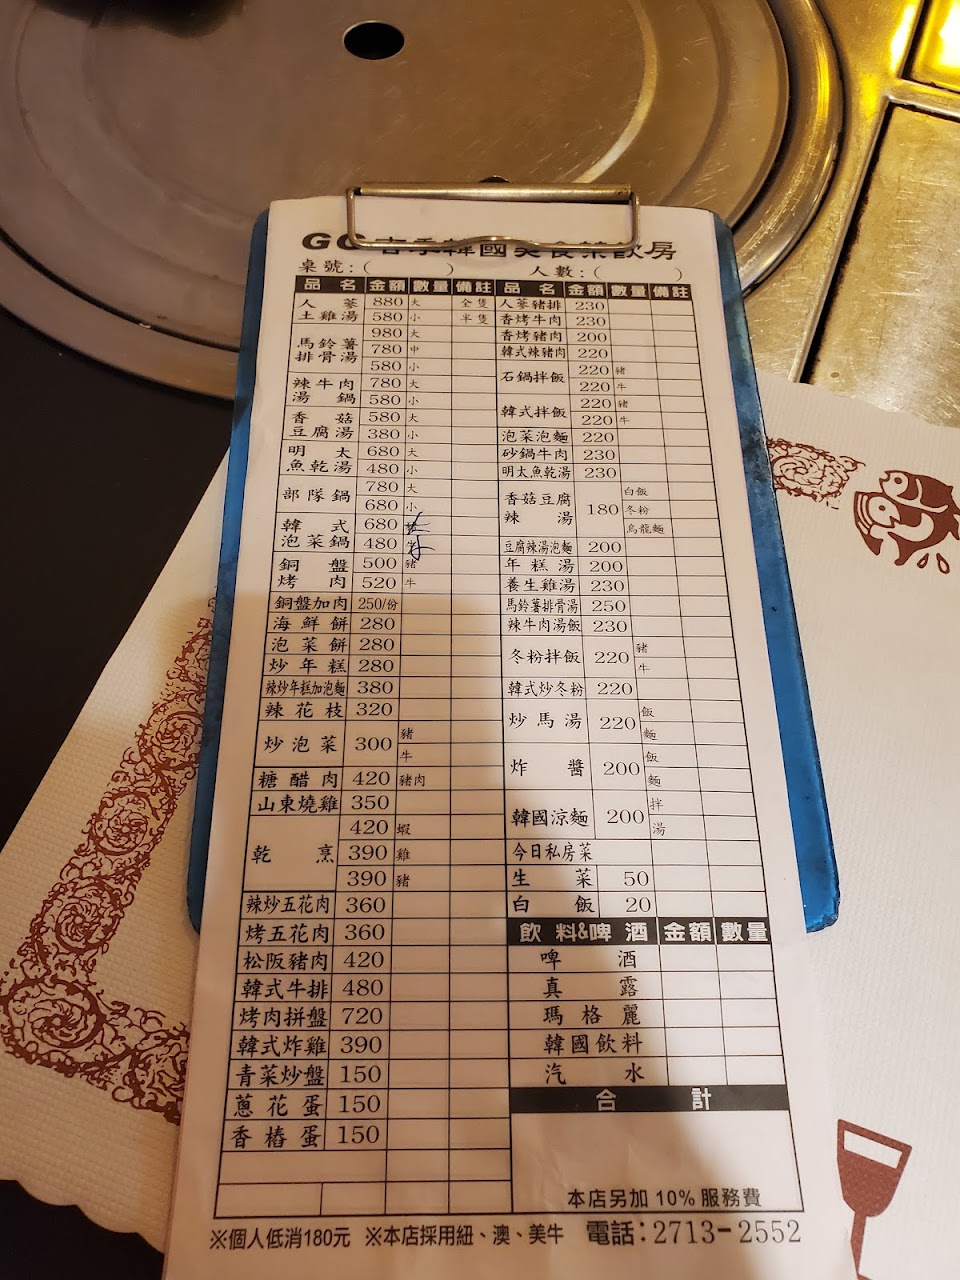 GG 吉季韓國美食餐飲房
桌號：（ ） 人數：（ ）
品名 金額 數量 備註
人蔘土雞湯 880 大 全隻
580 小 半隻
馬鈴薯排骨湯 980 大
780 中
580 小
辣牛肉湯鍋 780 大
580 小
香菇豆腐湯 580 大
380 小
明太魚乾湯 680 大
480 小
部隊鍋 780 大
680 小
韓式泡菜鍋 680
480
銅盤烤肉 500 豬
520 牛
銅盤加肉 250/份
海鮮餅 280
泡菜餅 280
炒年糕 280
辣炒年糕加泡麵 380
辣花枝 320
炒泡菜 300 豬
牛
糖醋肉 420 豬肉
山東燒雞 350
乾烹 420 蝦
390 雞
390 豬
辣炒五花肉 360
烤五花肉 360
松阪豬肉 420
韓式牛排 480
烤肉拼盤 720
韓式炸雞 390
青菜炒盤 150
蔥花蛋 150
香樁蛋 150
品名 金額 數量 備註
人蔘豬排 230
香烤牛肉 230
香烤豬肉 200
韓式辣豬肉 220
石鍋拌飯 220 豬
220 牛
韓式拌飯 220 豬
220 牛
泡菜泡麵 220
砂鍋牛肉 230
明太魚乾湯 230
香菇豆腐辣湯 180 白飯
冬粉
烏龍麵
豆腐辣湯泡麵 200
年糕湯 200
養生雞湯 230
馬鈴薯排骨湯 250
辣牛肉湯飯 230
冬粉拌飯 220 豬
牛
韓式炒冬粉 220
炒馬湯 220 飯
麵
炸醬 200 飯
麵
韓國涼麵 200 拌
湯
今日私房菜
生菜 50
白飯 20
飲料&啤酒 金額 數量
啤酒
真露
瑪格麗
韓國飲料
汽水
合計
本店另加 10% 服務費
※個人低消180元 ※本店採用紐、澳、美牛 電話：2713-2552